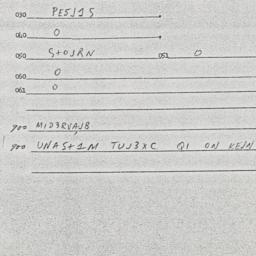 030 PE5J15
040 0
050 S+OJRN 051 0
060 0
061 0
700 MID3RVAJB
700 UNAS+1M TUJ3XC QI ON KEJN